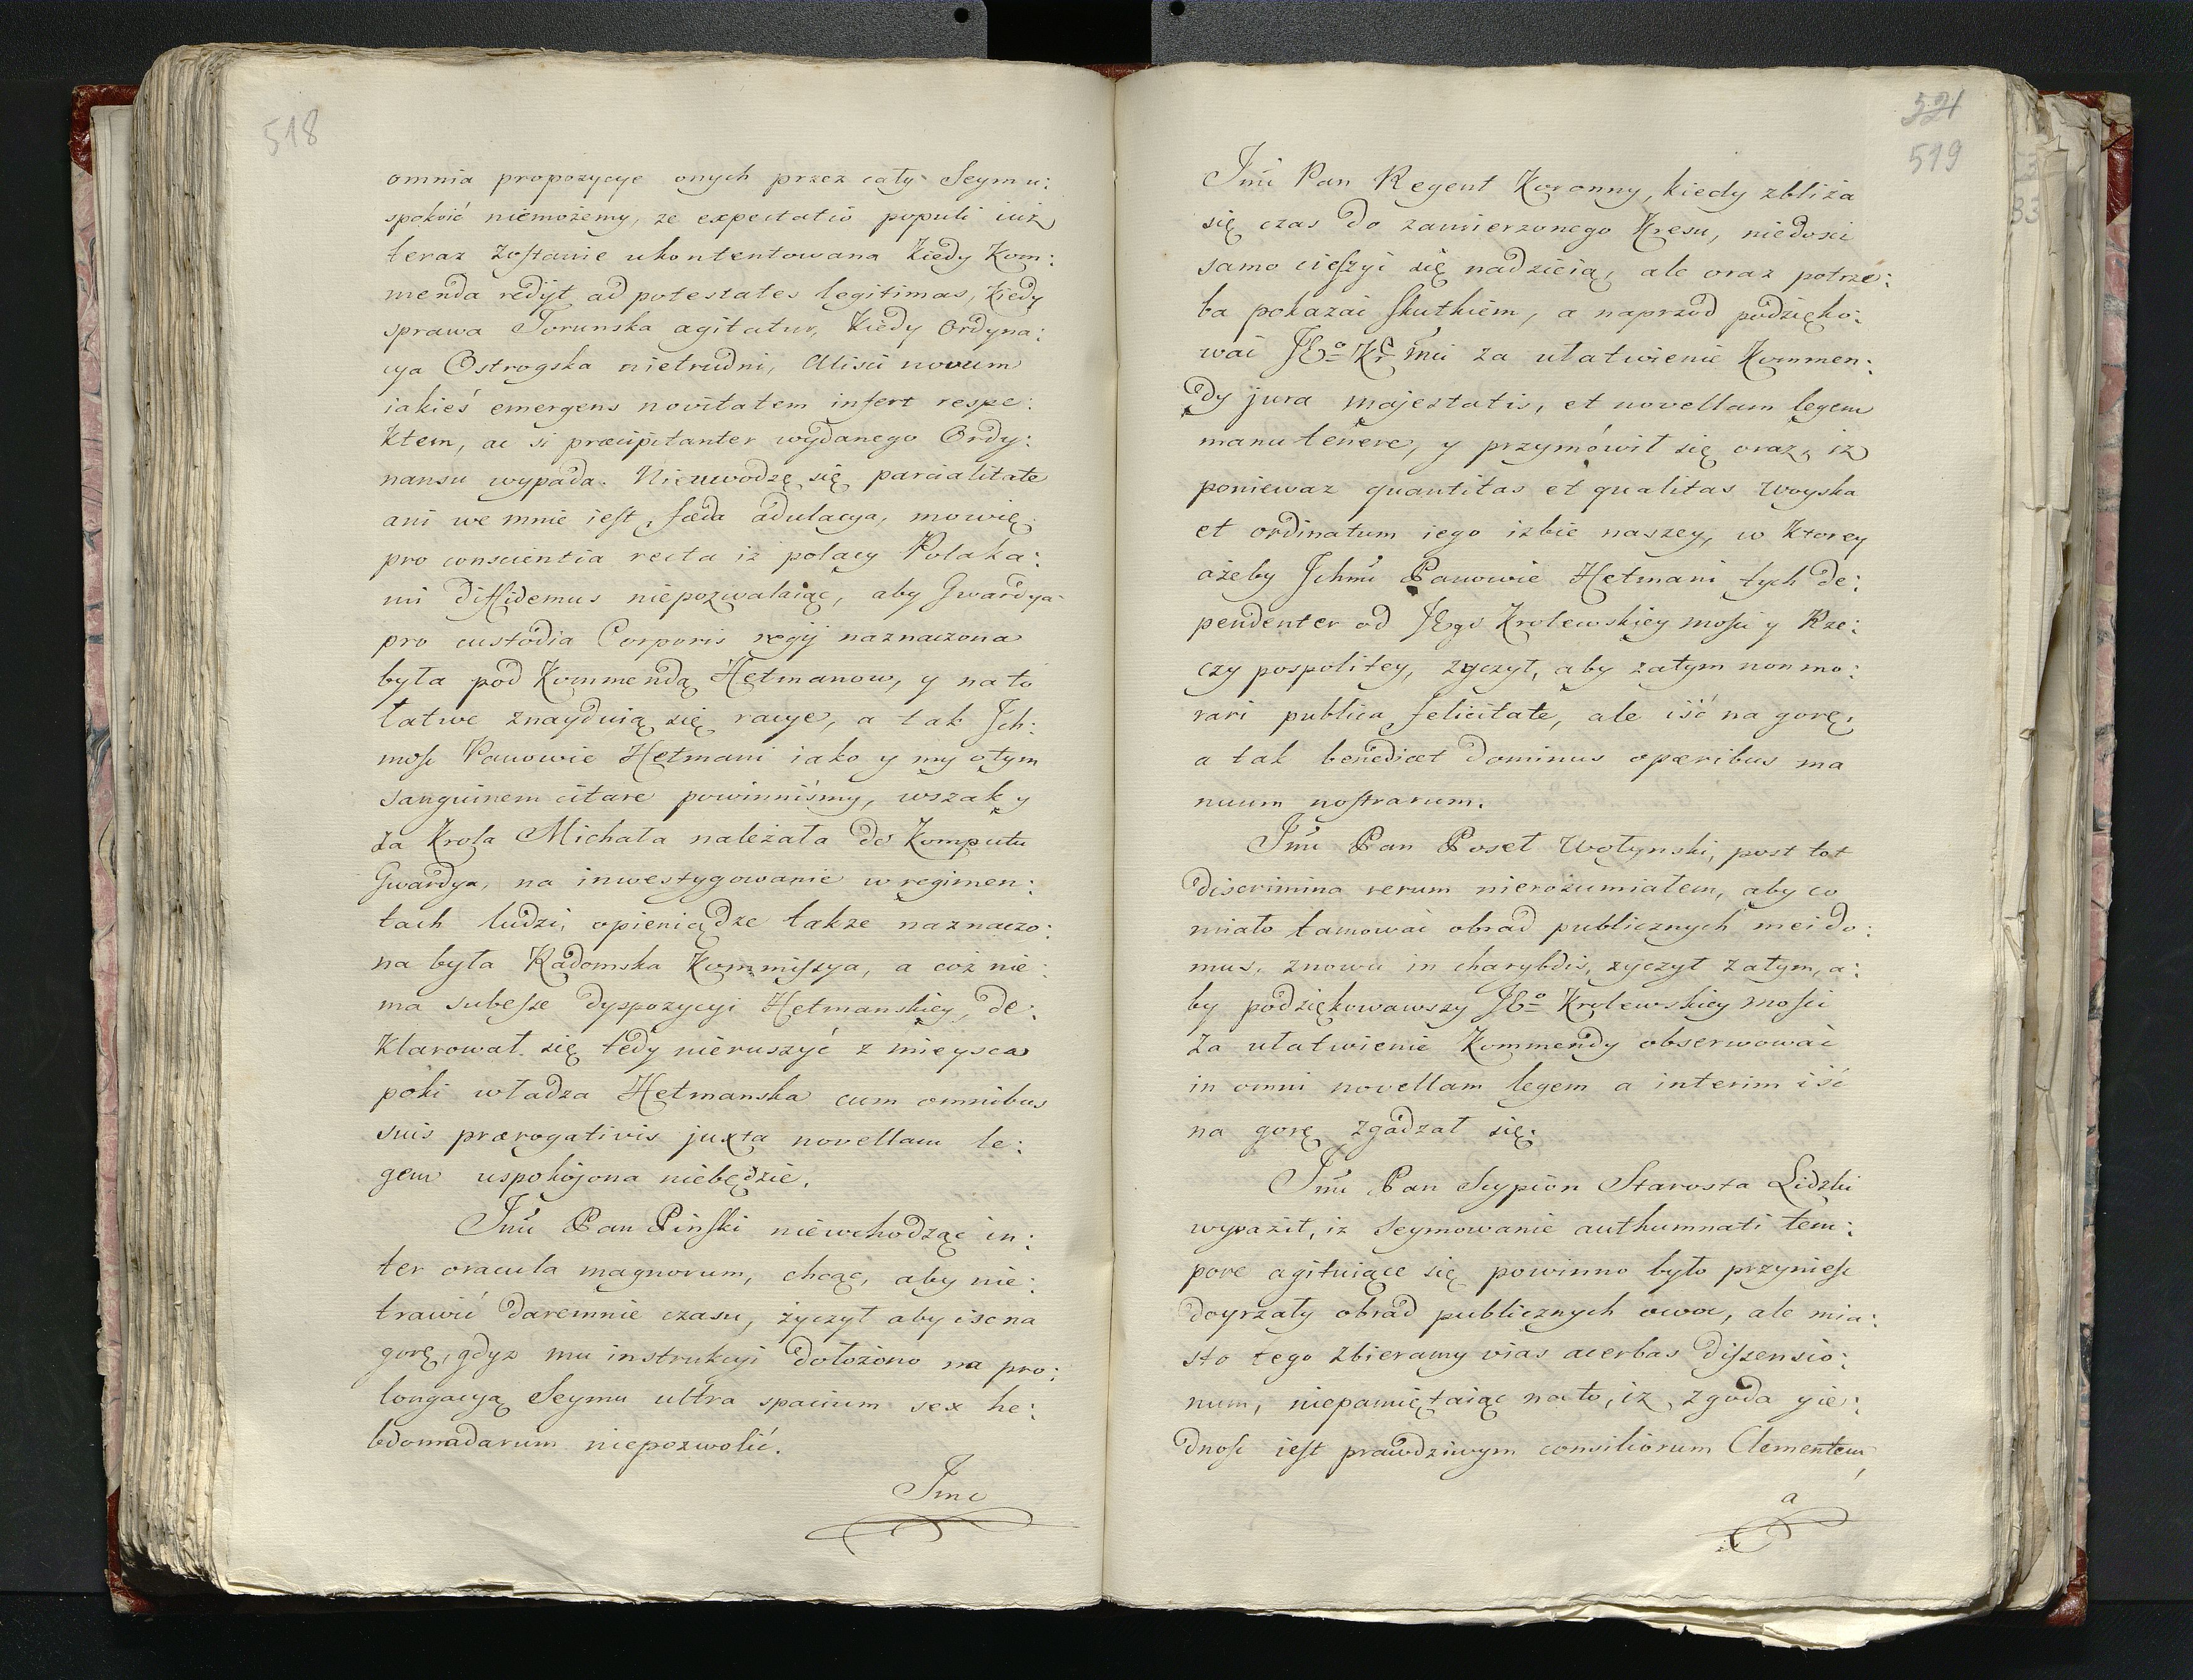 518
omnia propozycye onych przez cały Seym u:
spokoić niemożemy, ze expectatio populi iuż
teraz zostanie ukontentowana kiedy Kom:
menda redijt ad potestates legitimas, kiedy
sprawa Torunska agitatur, kiedy Ordyna:
cya Ostrogska nietrudni, Alisci novum
iakieś emergens novitatem infert respe:
ktem, ac si præcipitanter wydanego Ordy:
nansu wypada. Nieuwodzę się parcialitate
ani we mnie iest fæda adulacya, mowię
pro conscientia recta iz polacy Polaka:
mi diffidemus niepozwalaiąc, aby Gwardya
pro custodia Corporis regij naznaczona
była pod Kommendą Hetmanow, y na to
łatwe znayduią się racye, a tak Ich:
mośc Panowie Hetmani iako y my o tym
sanguinem citare powinniśmy, wszak y
za Krola Michała należała do Komputu
Gwardya, na inwestygowanie w regimen:
tach ludzi, o pieniądze także naznaczo:
na była Radomska Kommissya, a coż nie:
ma subesse dyspozycyi Hetmanskiey, de:
klarował się tedy nieruszyć z mieysca
poki władza Hetmanska cum omnibus
suis prærogativis juxta novellam le:
gem uspokojona niebędzie.
Jmć Pan Pinski niewchodząc in:
ter oracula magnorum, chcąc, aby nie:
trawić daremnie czasu, życzył aby isc na
gorę, gdyz mu instrukcyi dołożono na pro:
longacyą Seymu ultra spacium sex he:
bdomadarum niepozwolić.
Jmć
521
519
Jmć Pan Regent Koronny, kiedy zbliża
się czas do zamierzonego Kresu, niedosci
samo cieszyć się nadzieią, ale oraz potrze:
ba pokazać skutkiem, a naprzod podzięko:
wać JEo Kr mci za ułatwienie Kommen:
dy jura majestatis, et novellam legem
manu tenere, y przymówił się oraz, iz
poniewaz quantitas et qualitas woyska
et ordinatum iego izbie naszey, w ktorey
ażeby Ichmć Panowie Hetmani tych de:
pendenter od JEgo Krolewskiey mości y Rze:
czy pospolitey, życzył, aby zatym non mo:
rari publica felicitate, ale iść na gorę,
a tak benedicet Dominus operibus ma
nuum nostrarum.
Jmć Pan Poseł Wołynski, post tot
discrimina rerum nierozumiałem, aby co
miało tamować obrad publicznych inci do:
mus. znowu in charybdis, zyczył zatym, a:
by podziękowawszy JEo Krolewskiey mości
za ułatwienie Kommendy obserwować
in omni novellam legem a interim iść
na gorę zgadzał się.
Jmć Pan Scypion Starosta Lidzki
wyraził, iz Seymowanie authumnati tem:
pore agituiące się powinno było przyniesc
doyrzały obrad publicznych owoc, ale mia:
sto tego zbieramy vias acerbas dissensio:
num, niepamiętaiąc na to, iz zgoda y ie:
dnosc iest prawdziwym consiliorum Clementem,
a